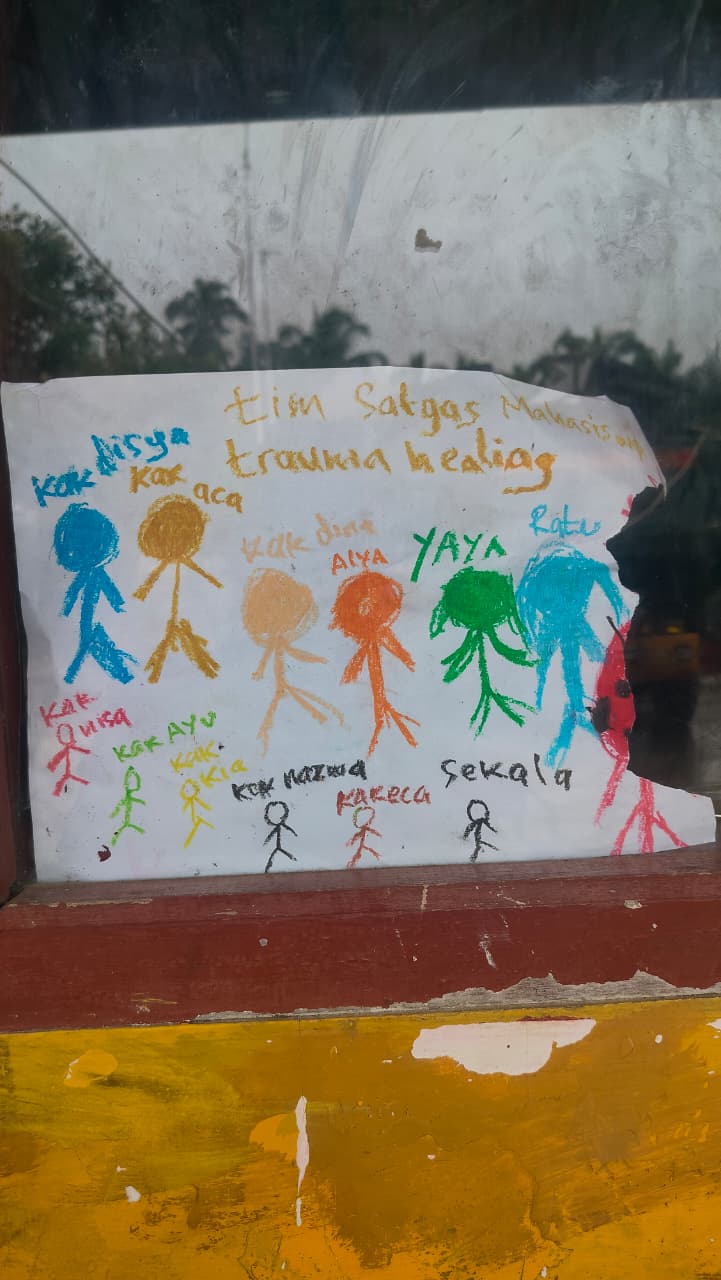 tim Satgas Mahasiswa
trauma healing
kak disya
kak aca
kak dina
AlYA
YAYA
Ratu
kak nisa
kak AyU
kak kia
kak nazwa
kakeca
sekala